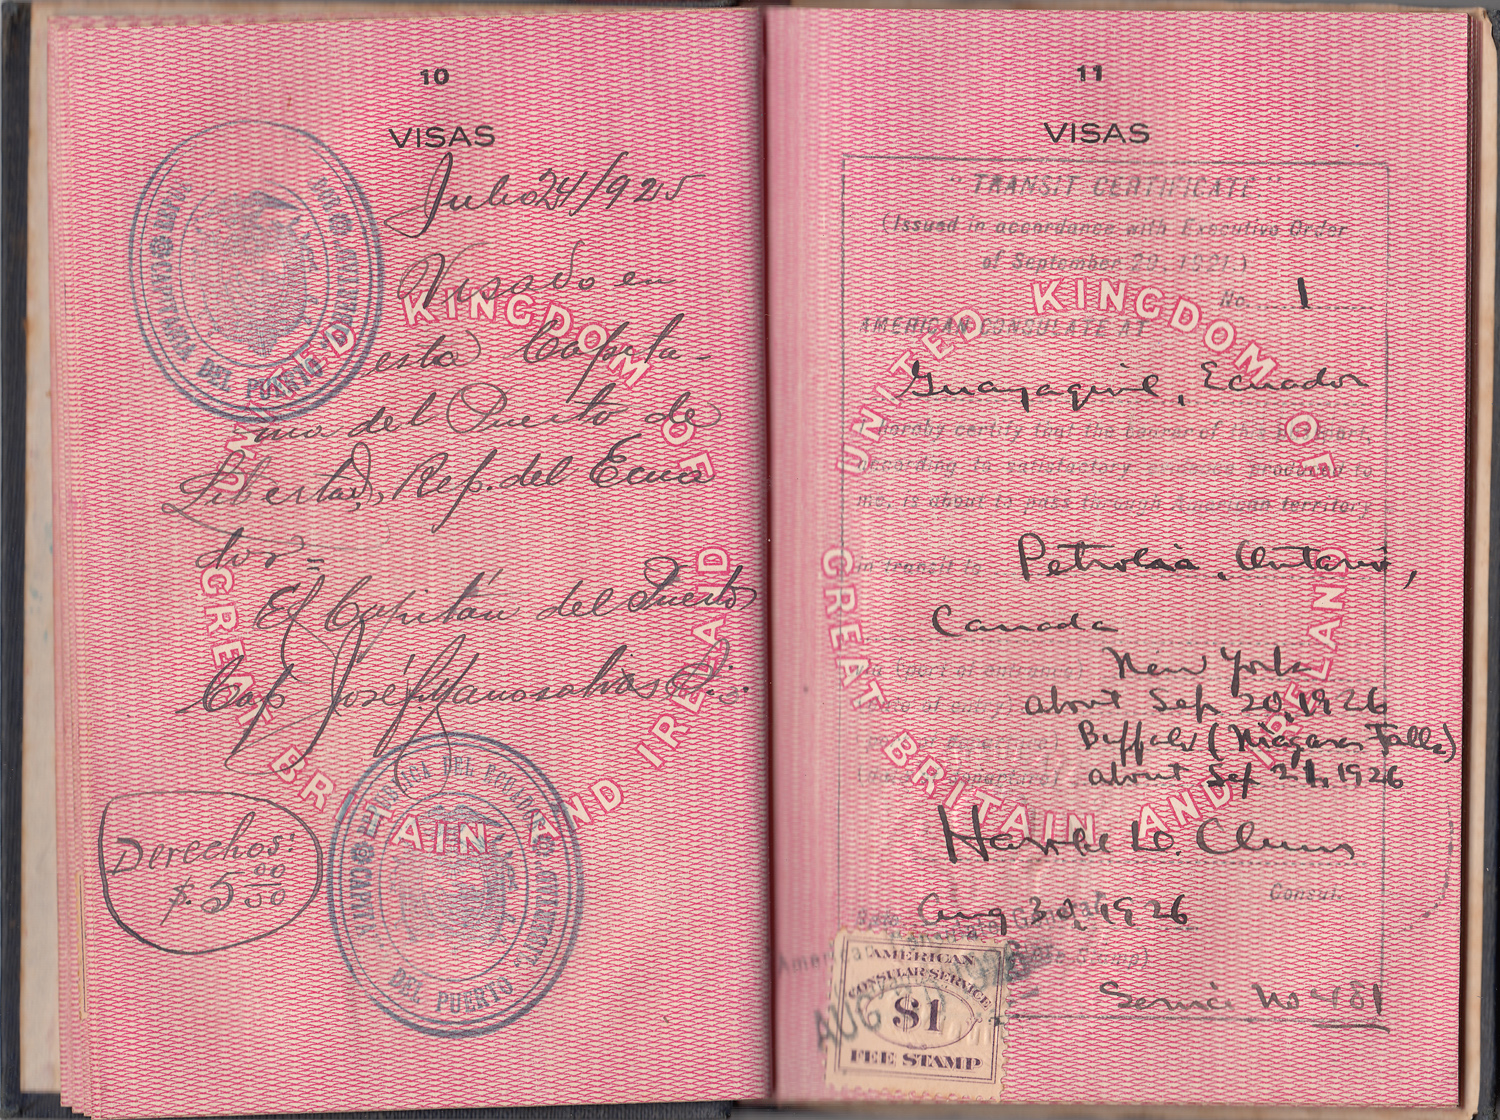 10
VISAS
Julio 24/925
Visado en
esta Capita-
nia del Puerto de
Libertad, Rep. del Ecua
dor=
El Capitán del Puerto
Cap José
Derechos:
$. 5 00/00
CAPITANIA DEL PUERTO
DEL ECUADOR
CAPITANIA DEL PUERTO
UNITED KINGDOM OF
GREAT BRITAIN AND IRELAND
11
VISAS
"TRANSIT CERTIFICATE"
(Issued in accordance with Executive Order
of September
No. 1
AMERICAN CONSULATE AT
Guayaquil, Ecuador
I hereby certify that the bearer of this passport,
according to satisfactory evidence produced to
me, is about to pass through American territory
in transit to Petrolia, Ontario,
Canada
(port of entrance) New York
of entry) about Sep 20, 1926
Buffalo (Niagara Falls)
about Sep 21, 1926
Harold D. Clum
Consul.
Aug 30, 1926
Service No 481
AMERICAN
CONSULAR SERVICE
$1
FEE STAMP
AUG
UNITED KINGDOM OF
GREAT BRITAIN AND IRELAND